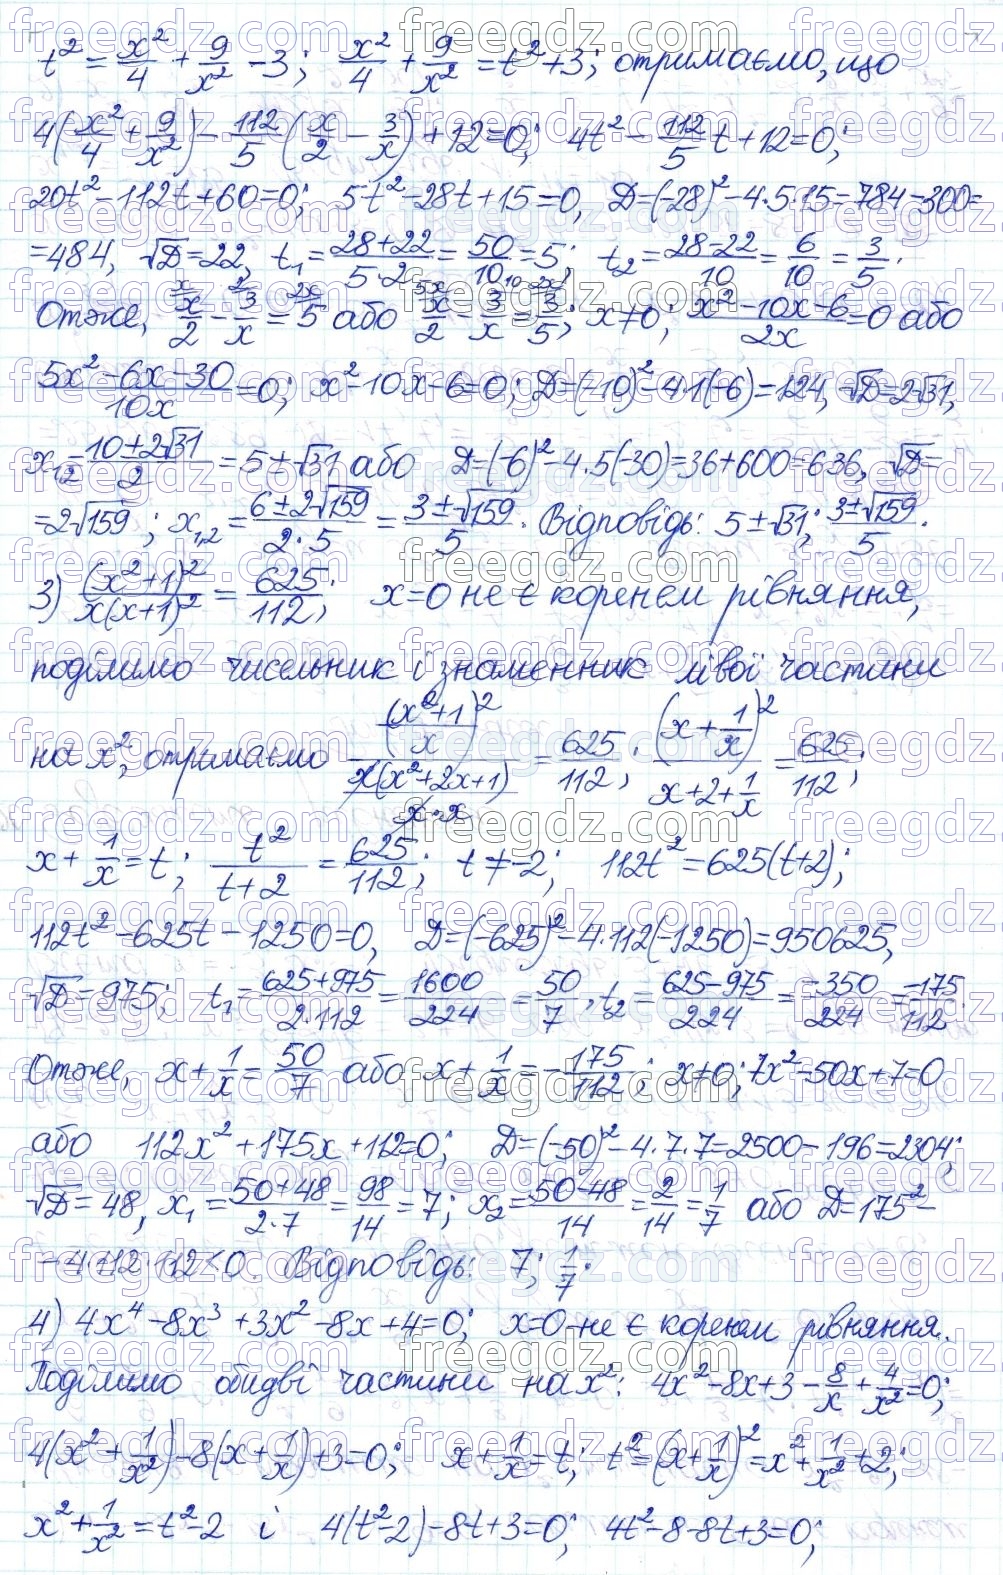 t² = x²/4 + 9/x² - 3; x²/4 + 9/x² = t² + 3; отримаємо, що
4(x²/4 + 9/x²) - 112/5 (x/2 - 3/x) + 12 = 0; 4t² - 112/5 t + 12 = 0;
20t² - 112t + 60 = 0; 5t² - 28t + 15 = 0, D = (-28)² - 4·5·15 = 784 - 300 =
= 484, √D = 22, t₁ = (28+22)/(5·2) = 50/10 = 5; t₂ = (28-22)/10 = 6/10 = 3/5.
Отже, x/2 - 3/x = 5 або x/2 - 3/x = 3/5; x≠0; (x² - 10x - 6)/2x = 0 або
(5x² - 6x - 30)/10x = 0; x² - 10x - 6 = 0; D = (-10)² - 4·1(-6) = 124, √D = 2√31,
x₁,₂ = (10 ± 2√31)/2 = 5 ± √31 або D = (-6)² - 4·5(-30) = 36 + 600 = 636, √D =
= 2√159; x₁,₂ = (6 ± 2√159)/(2·5) = (3 ± √159)/5. Відповідь: 5 ± √31; (3 ± √159)/5.
3) (x²+1)²/(x(x+1)²) = 625/112; x = 0 не є коренем рівняння,
поділимо чисельник і знаменник лівої частини
на x², отримаємо ((x²+1)/x)²/(x(x²+2x+1)/(x·x)) = 625/112; (x + 1/x)²/(x + 2 + 1/x) = 625/112;
x + 1/x = t; t²/(t+2) = 625/112; t ≠ -2; 112t² = 625(t+2);
112t² - 625t - 1250 = 0, D = (-625)² - 4·112(-1250) = 950625,
√D = 975; t₁ = (625+975)/(2·112) = 1600/224 = 50/7, t₂ = (625-975)/224 = -350/224 = -175/112.
Отже, x + 1/x = 50/7 або x + 1/x = -175/112; x≠0; 7x² - 50x + 7 = 0
або 112x² + 175x + 112 = 0; D = (-50)² - 4·7·7 = 2500 - 196 = 2304;
√D = 48, x₁ = (50+48)/(2·7) = 98/14 = 7; x₂ = (50-48)/14 = 2/14 = 1/7 або D = 175² -
- 4·112·112 < 0. Відповідь: 7; 1/7.
4) 4x⁴ - 8x³ + 3x² - 8x + 4 = 0; x = 0 - не є коренем рівняння.
Поділимо обидві частини на x²: 4x² - 8x + 3 - 8/x + 4/x² = 0;
4(x² + 1/x²) - 8(x + 1/x) + 3 = 0; x + 1/x = t; t² = (x + 1/x)² = x² + 1/x² + 2;
x² + 1/x² = t² - 2 і 4(t² - 2) - 8t + 3 = 0; 4t² - 8 - 8t + 3 = 0;